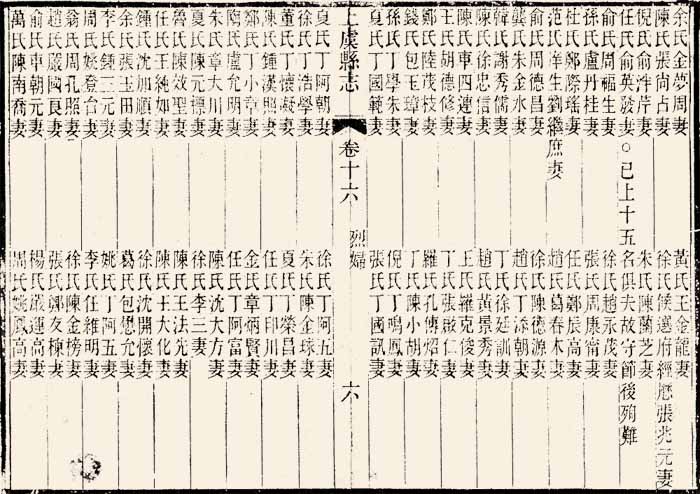 余氏金夢周妻 黃氏王金龍妻
陳氏張尚占妻 徐氏候選府經歷張兆元妻
倪氏俞泮芹妻 朱氏陳蘭芝妻
任氏俞英發妻○已上十五名俱夫故守節後殉難
俞氏周福生妻 徐氏趙永茂妻
孫氏盧丹桂妻 張氏周康甯妻
杜氏鄭際瑤妻 任氏鄭辰高妻
范氏庠生劉繼庶妻 趙氏葛春木妻
俞氏周德昌妻 徐氏陳德源妻
龔氏朱金水妻 趙氏丁添朝妻
韓氏謝秀儒妻 丁氏徐廷訓妻
陳氏徐忠信妻 趙氏黃景秀妻
陳氏車四連妻 王氏羅克俊妻
王氏胡德修妻 丁氏張啟仁妻
鄭氏陸茂枝妻 羅氏孔傳炤妻
錢氏包玉璋妻 丁氏陳小胡妻
孫氏丁學朱妻 倪氏丁鳴鳳妻
夏氏丁國範妻 張氏丁國訊妻
上虞縣志 卷十六 烈婦 六
夏氏丁阿朝妻 徐氏丁阿五妻
徐氏丁浩學妻 朱氏陳金球妻
董氏丁懷凝妻 夏氏丁榮昌妻
陳氏鍾漢照妻 任氏丁印川妻
鄭氏丁小章妻 金氏章炳賢妻
隋氏盧允明妻 任氏丁阿富妻
朱氏章大川妻 陳氏沈大方妻
夏氏陳元標妻 徐氏李三妻
魯氏陳效聖妻 陳氏王法先妻
任氏王純如妻 陳氏王大化妻
鍾氏沈加順妻 徐氏沈開懷妻
余氏張玉田妻 葛氏包想允妻
李氏鍾三元妻 姚氏丁阿五妻
周氏姚登台妻 李氏任維明妻
翁氏周孔照妻 徐氏陳金榜妻
趙氏嚴國良妻 張氏鄭友棟妻
俞氏車朝元妻 楊氏嚴運高妻
萬氏陳南喬妻 周氏姚鳳高妻